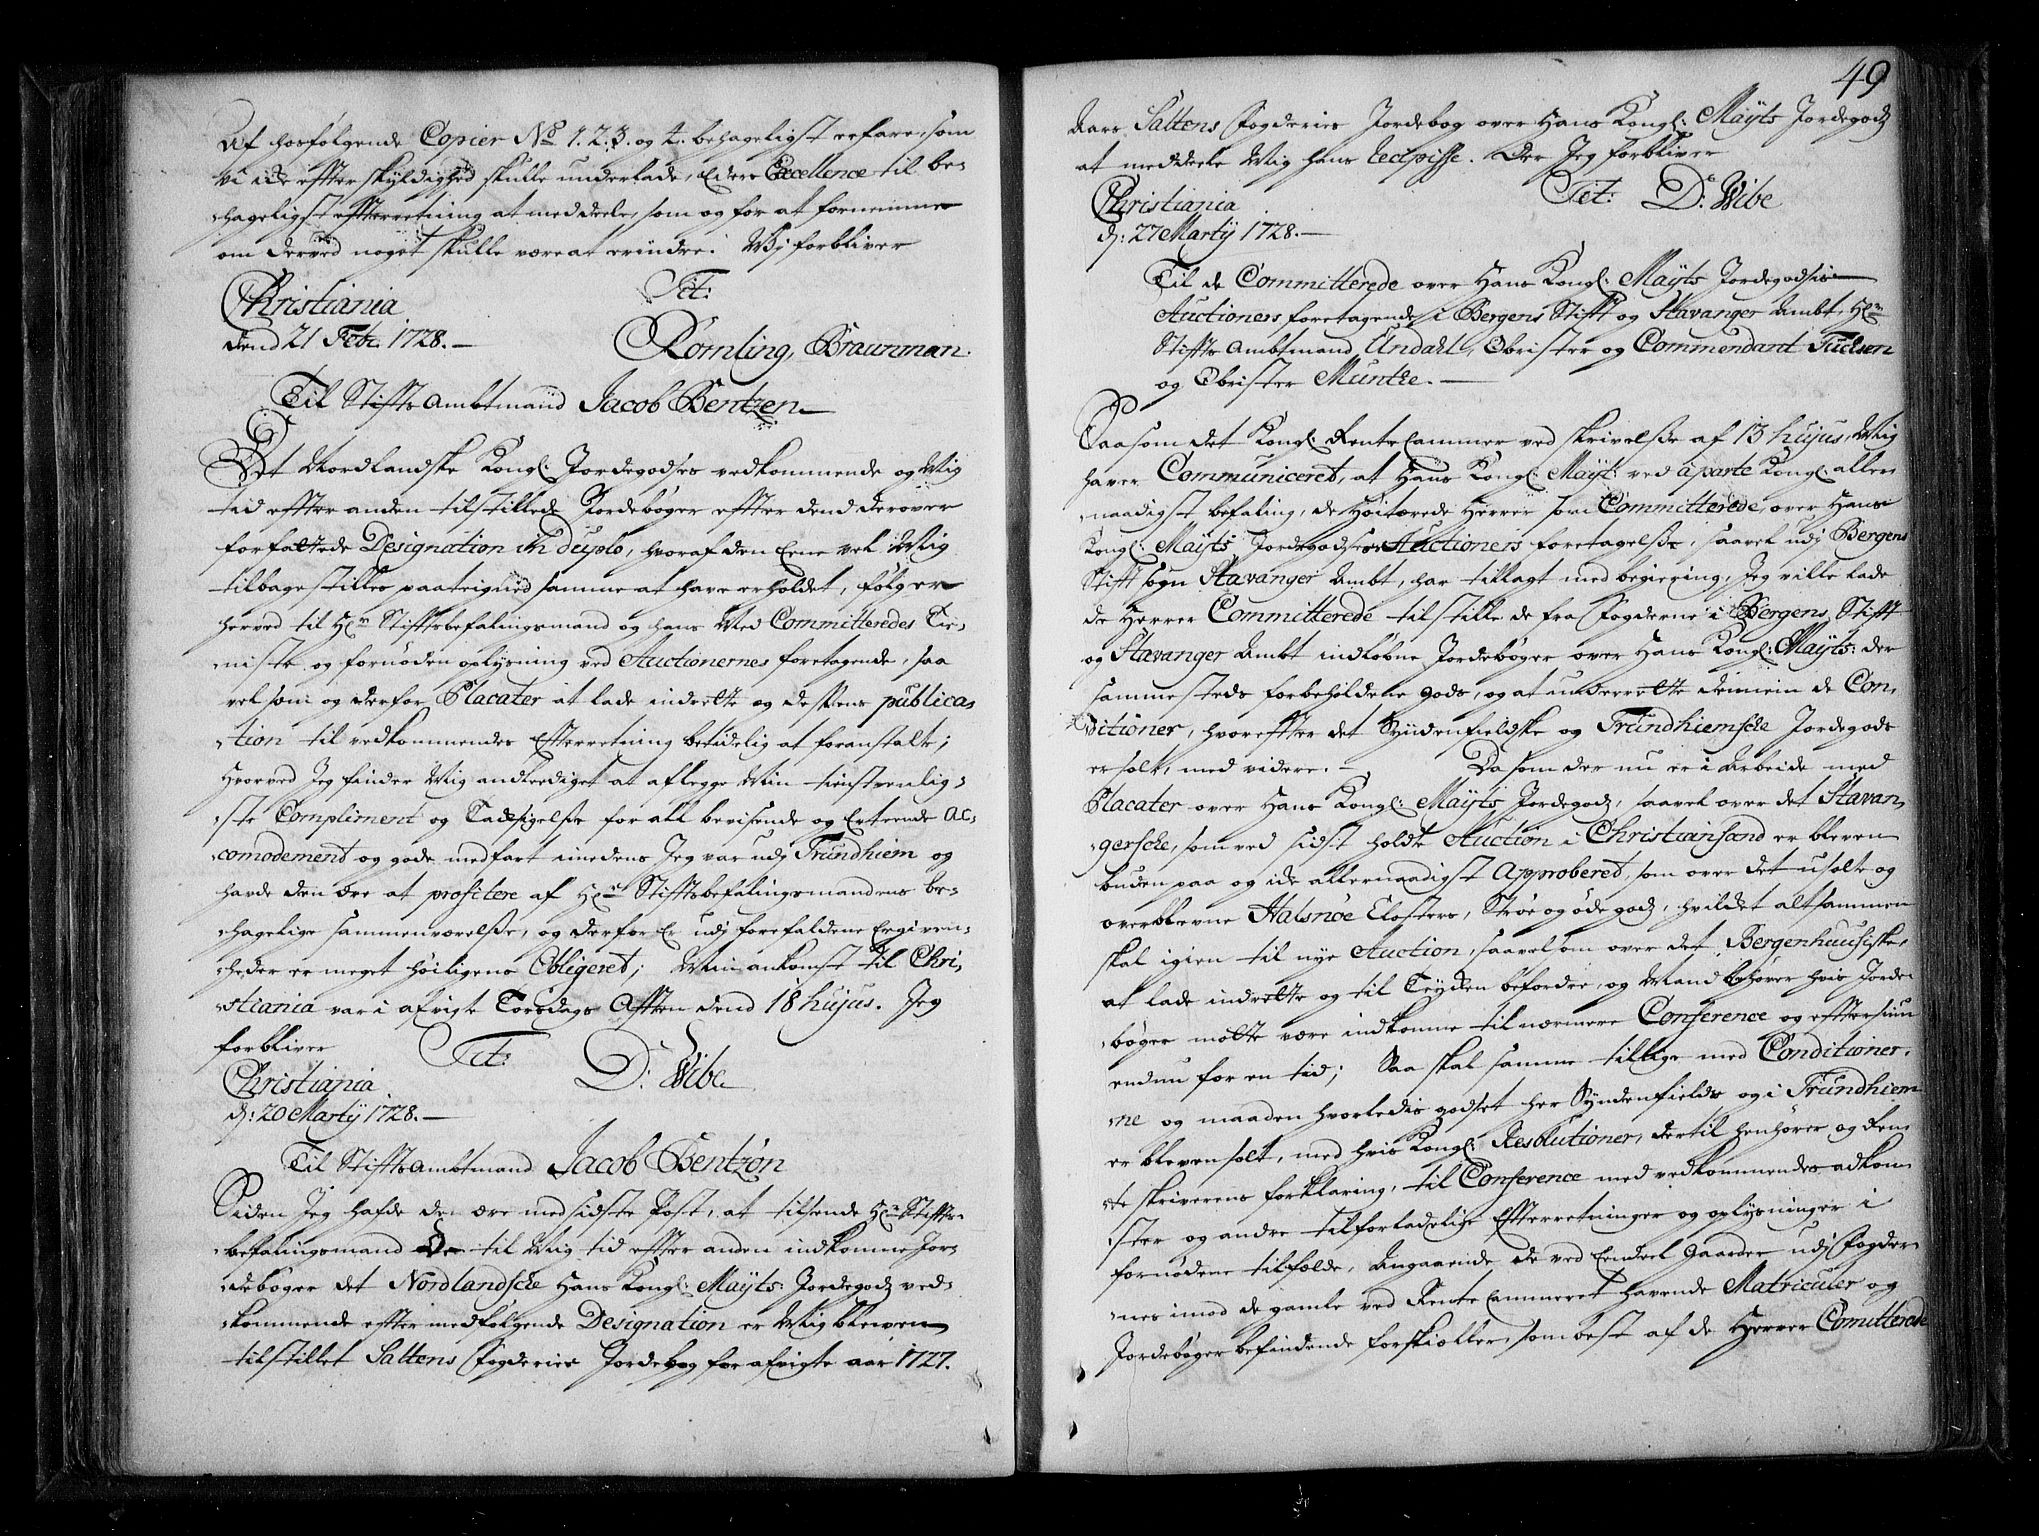 Af hosfølgende Copier No 1. 2. 3. og 4. behageligst erfare, som
Vi icke effter skyldighed skulle underlade, Eders Excellence til be-
hageligst effterretning at meddeele, som og for at fornemme
om derved noget skulle være at erindre. Vi forbliver
Christiania
dend 21 Febr. 1728. —
Tit:
Römling, Braunman.
Til Stiftsambtmand Jacob Bentzen —
Det Nordlandske Kongl: Jordegodses vedkommende og Mig
tid effter anden tilstillede Jordebøger effter dend derover
forfattede Designation in duplo, hvoraf den Eene vel Mig
tilbagestilles paateigned samme at have erholdet, følger
herved til Hr. Stiftsbefalingsmand og hans Med Committeredes Tie-
niste og fornøden oplysning ved Auctionernes foretagende, saa
vel som og derfor Placater at lade indrette og des publica-
tion til vedkommendes Efterretning betidelig at foranstalte;
Hvorved Jeg finder Mig anlediget at aflegge Min tienstvenlig-
ste Compliment og Tacksigelse for all bevisende og Erteende Ac-
comodement og gode medfart imedens Jeg var udj Trundhiem og
havde den ære at profitere af Hr. Stiftsbefalingsmandens be-
hagelige sammenværelse, og derfor Er udj forefaldene Ergiven-
heder er meget høiligens Obligeret; Min ankomst til Chri-
stiania var i afvigte Torsdags Afften dend 18 hujus. Jeg
forbliver
Tit:
D: Wibe
Christiania
d: 20 Martij 1728. —
Til Stiftsambtmand Jacob Bentzøn
Siden Jeg hafde den ære med sidste Post, at tilsende Hr. Stiffts-
befalingsmand De til Mig tid effter anden indkomne Jor-
debøger det Nordlandsche Hans Kongl: Mayts: Jordegods ved-
kommende effter medfølgende Designation er Mig bleven
tilstillet Saltens Fogderies Jordebog for afvigte aar 1727.
49
Aars Saltens Fogderies Jordebog over Hans Kongl: Mayts Jordegods
at meddeele Mig hans recipisse. Der Jeg forbliver
Tit: D: Wibe
Christiania
d: 27 Martij 1728. —
Til de Committerede over Hans Kongl: Mayts Jordegodsis
Auctioners foretagende i Bergens Stifft og Stavanger Ambt, Hr.
Stiffts Ambtmand Undahl, Obrister og Commendant Tuchsen
og Obrister Munthe. —
Saasom det Kongl: Rente Cammer ved skrivelse af 13 hujus, Mig
haver Communiceret, at Hans Kongl: Mayt: ved aparte Kongl: aller-
naadigst befaling, de Høitærede Herrer som Committerede, over Hans
Kongl: Mayts Jordegodses Auctioners foretagelse, saavel udj Bergens
Stift som Stavanger Ambt, har tillagt med begiering, Jeg ville lade
de Herrer Committerede tilstille de fra Fogderne i Bergens Stifft
og Stavanger Ambt indløbne Jordebøger over Hans Kongl: Mayts: der
sammesteds forbeholdene gods, og at underrette dennem de Con-
ditioner, hvoreffter det Syndenfieldske og Trundhiemsche Jordegods
er solt, med videre. — Da som der nu er i Arbeide med
Placater over Hans Kongl: Mayts Jordegods, saavel over det Stavan-
gersche, som ved sidst holdte Auction i Christiansand er bleven
buden paa og icke allernaadigst Approberet, som over det usolte og
overblevne Halsnøe Closters, Strøe og øde gods, hvilcket altsammen
skal igien til nye Auction, saavelsom over det Bergenhuusiske,
at lade indrette og til Trycken befordre, og Mand behøver hvis Jorde-
bøger motte være indkomne til nærmere Conference og effterssiun
endnu for en tid; Saa skal samme tillige med Conditioner-
ne og maaden hvorledis godset her Syndenfields og i Trundhiem
er bleven solt, med hvis Kongl: Resolutioner, dertil henhører og Ren-
te skriverens forklaring, til Conference med vedkommendes adkom-
ster og andre tilforladelige Efterretninger og oplysninger i
fornødene tilfælde, Angaaende de ved Eendeel Gaarder udj Fogderi-
nes imod de gamle ved Rente Cammeret havende Matriculer og
Jordebøger befindende forskioller, som best af de Herrer Comitterede